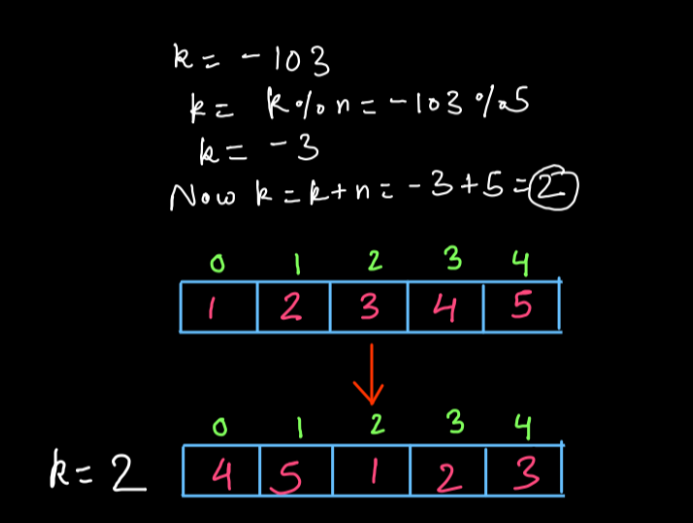 k = -103
k = k%n = -103 %5
k = -3
Now k = k+n = -3+5 = 2
0 1 2 3 4
1 2 3 4 5
0 1 2 3 4
k = 2 4 5 1 2 3